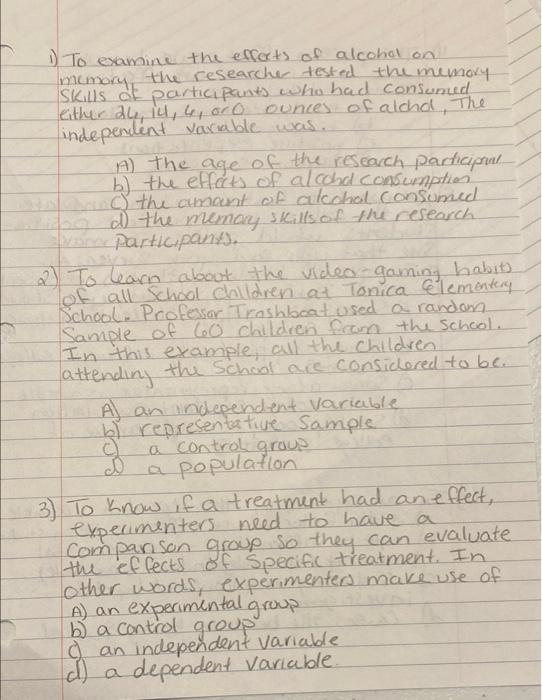 1) To examine the effects of alcohol on
memory, the researcher tested the memory
skills of participants who had consumed
either 24, 14, 6, or 0 ounces of alchol, The
independent variable was.
A) the age of the research participant
b) the effects of alcohol consumption
c) the amount of alcohol consumed
d) the memory skills of the research
participants.
2) To learn about the video-gaming habits
of all School children at Tonica Elementary
School. Professor Trashboat used a random
Sample of 60 children from the school.
In this example, all the children
attending the School are considered to be.
A) an independent variable
b) representative sample
c) a control group
d) a population
3) To know if a treatment had an effect,
experimenters need to have a
comparison group so they can evaluate
the effects of specific treatment. In
other words, experimenters make use of
A) an experimental group
b) a control group
c) an independent variable
d) a dependent variable.